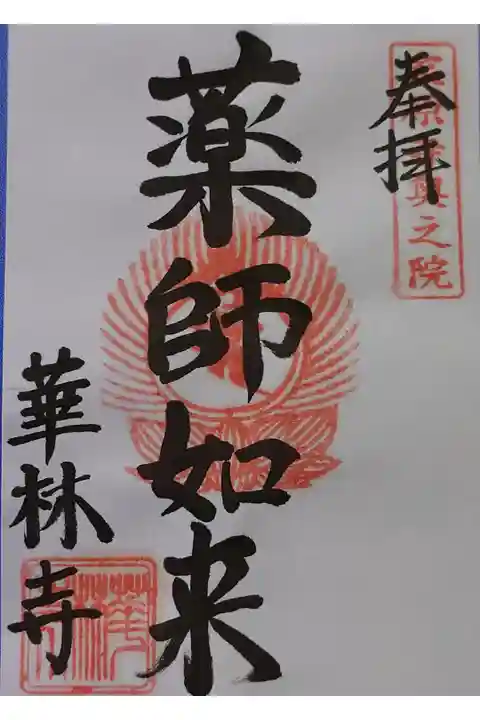 奉拝
奥之院
薬師如来
華林寺